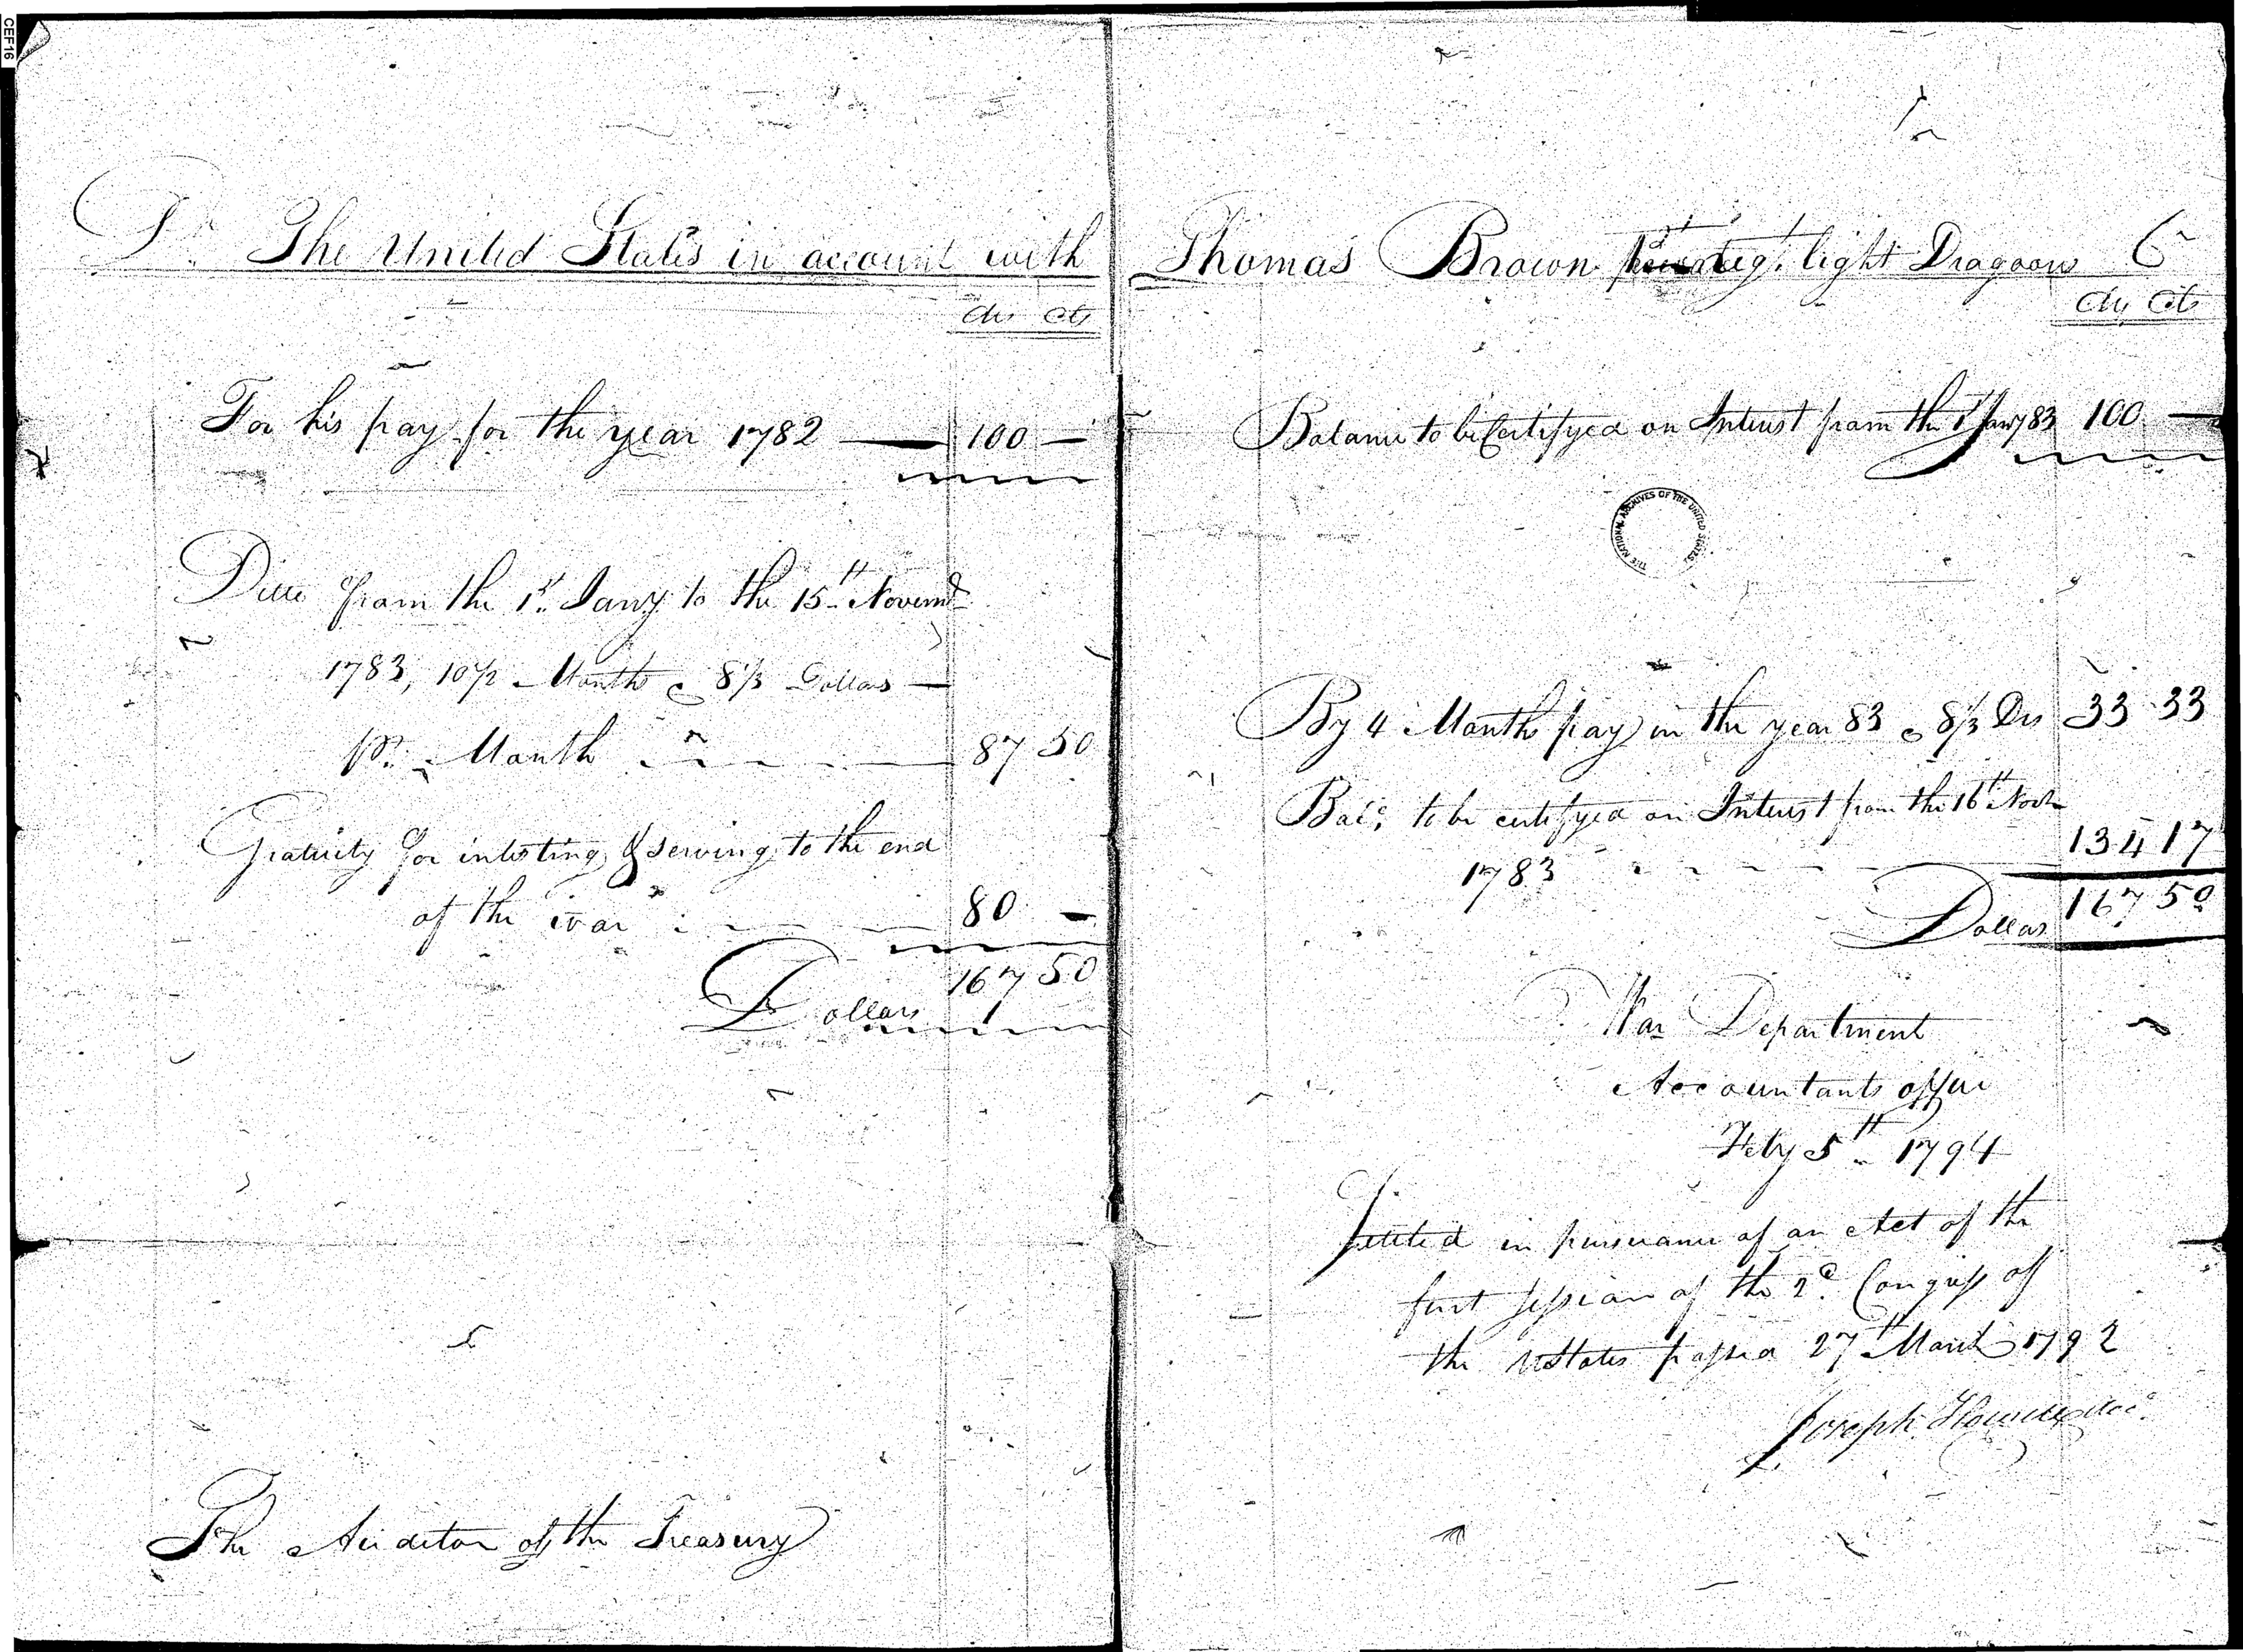 CEF16
Dr. The United States in account with
Drs Cts
For his pay for the year 1782 — 100 —
Ditto from the 1st. Jany to the 15th Novemr
1783, 10½ Months @ 8⅓ Dollars —
pr. Month 87 50
Gratuity for inlisting & serving to the end
of the war 80 —
Dollars 167 50
The Auditor of the Treasury
Thomas Brown regt. light Dragoons Cr
Drs Cts
Balance to be Certifyed on Interest from the 1st Jany 83 100 —
THE NATIONAL ARCHIVES OF THE UNITED STATES
By 4 Months pay in the year 83 @ 8⅓ Drs 33 33
Bale. to be certifyed on Interest from the 16th Novr
1783 134 17
Dollars 167 50
War Department
Accountants office
Feby 5th 1794
Settled in pursuance of an Act of the
first session of the 2d. Congress of
the UStates passed 27th March 1792
Joseph Howell Acct.